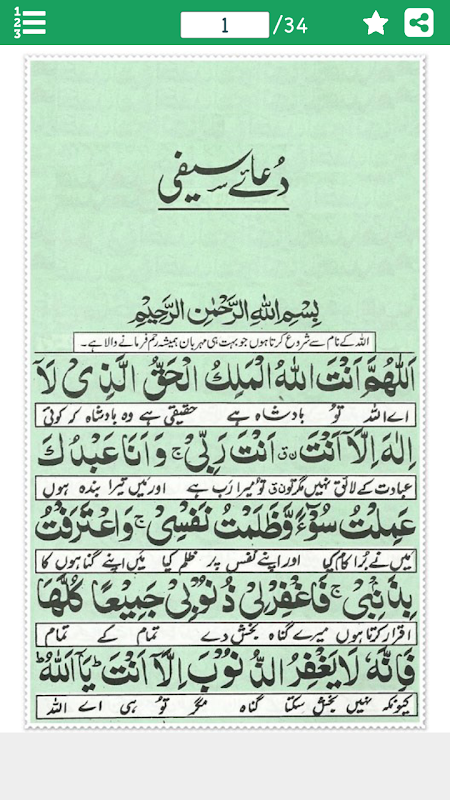 1
2
3
1 /34
دُعائے سیفی
بِسْمِ اللهِ الرَّحْمٰنِ الرَّحِيْمِ
اللہ کے نام سے شروع کرتا ہوں جو بہت ہی مہربان ہمیشہ رحم فرمانے والا ہے۔
اَللّٰهُمَّ اَنْتَ اللهُ الْمَلِكُ الْحَقُّ الَّذِیْ لَآ
اے اللہ تُو بادشاہ ہے حقیقی ہے وہ بادشاہ کہ کوئی
اِلٰهَ اِلَّآ اَنْتَ ن ق اَنْتَ رَبِّیْ ج وَ اَنَا عَبْدُكَ
عبادت کے لائق نہیں مگر تو ن ق تُو میرا رَب ہے اور مَیں تیرا بندہ ہوں
عَمِلْتُ سُوْٓءً وَّظَلَمْتُ نَفْسِیْ ج وَاعْتَرَفْتُ
میں نے بُرا کام کیا اور اپنے نفس پر ظلم کیا میں اپنے گناہوں کا
بِذَنْۢبِیْ ج فَاغْفِرْلِیْ ذُنُوْبِیْ جَمِیْعًا كُلَّهَا
اقرار کرتا ہوں میرے گناہ بخش دے تمام کے تمام
فَاِنَّهٗ لَا یَغْفِرُ الذُّنُوْبَ اِلَّآ اَنْتَ ط یَآ اَللهُ ط
کیونکہ نہیں بخش سکتا گناہ مگر تُو ہی اے اللہ